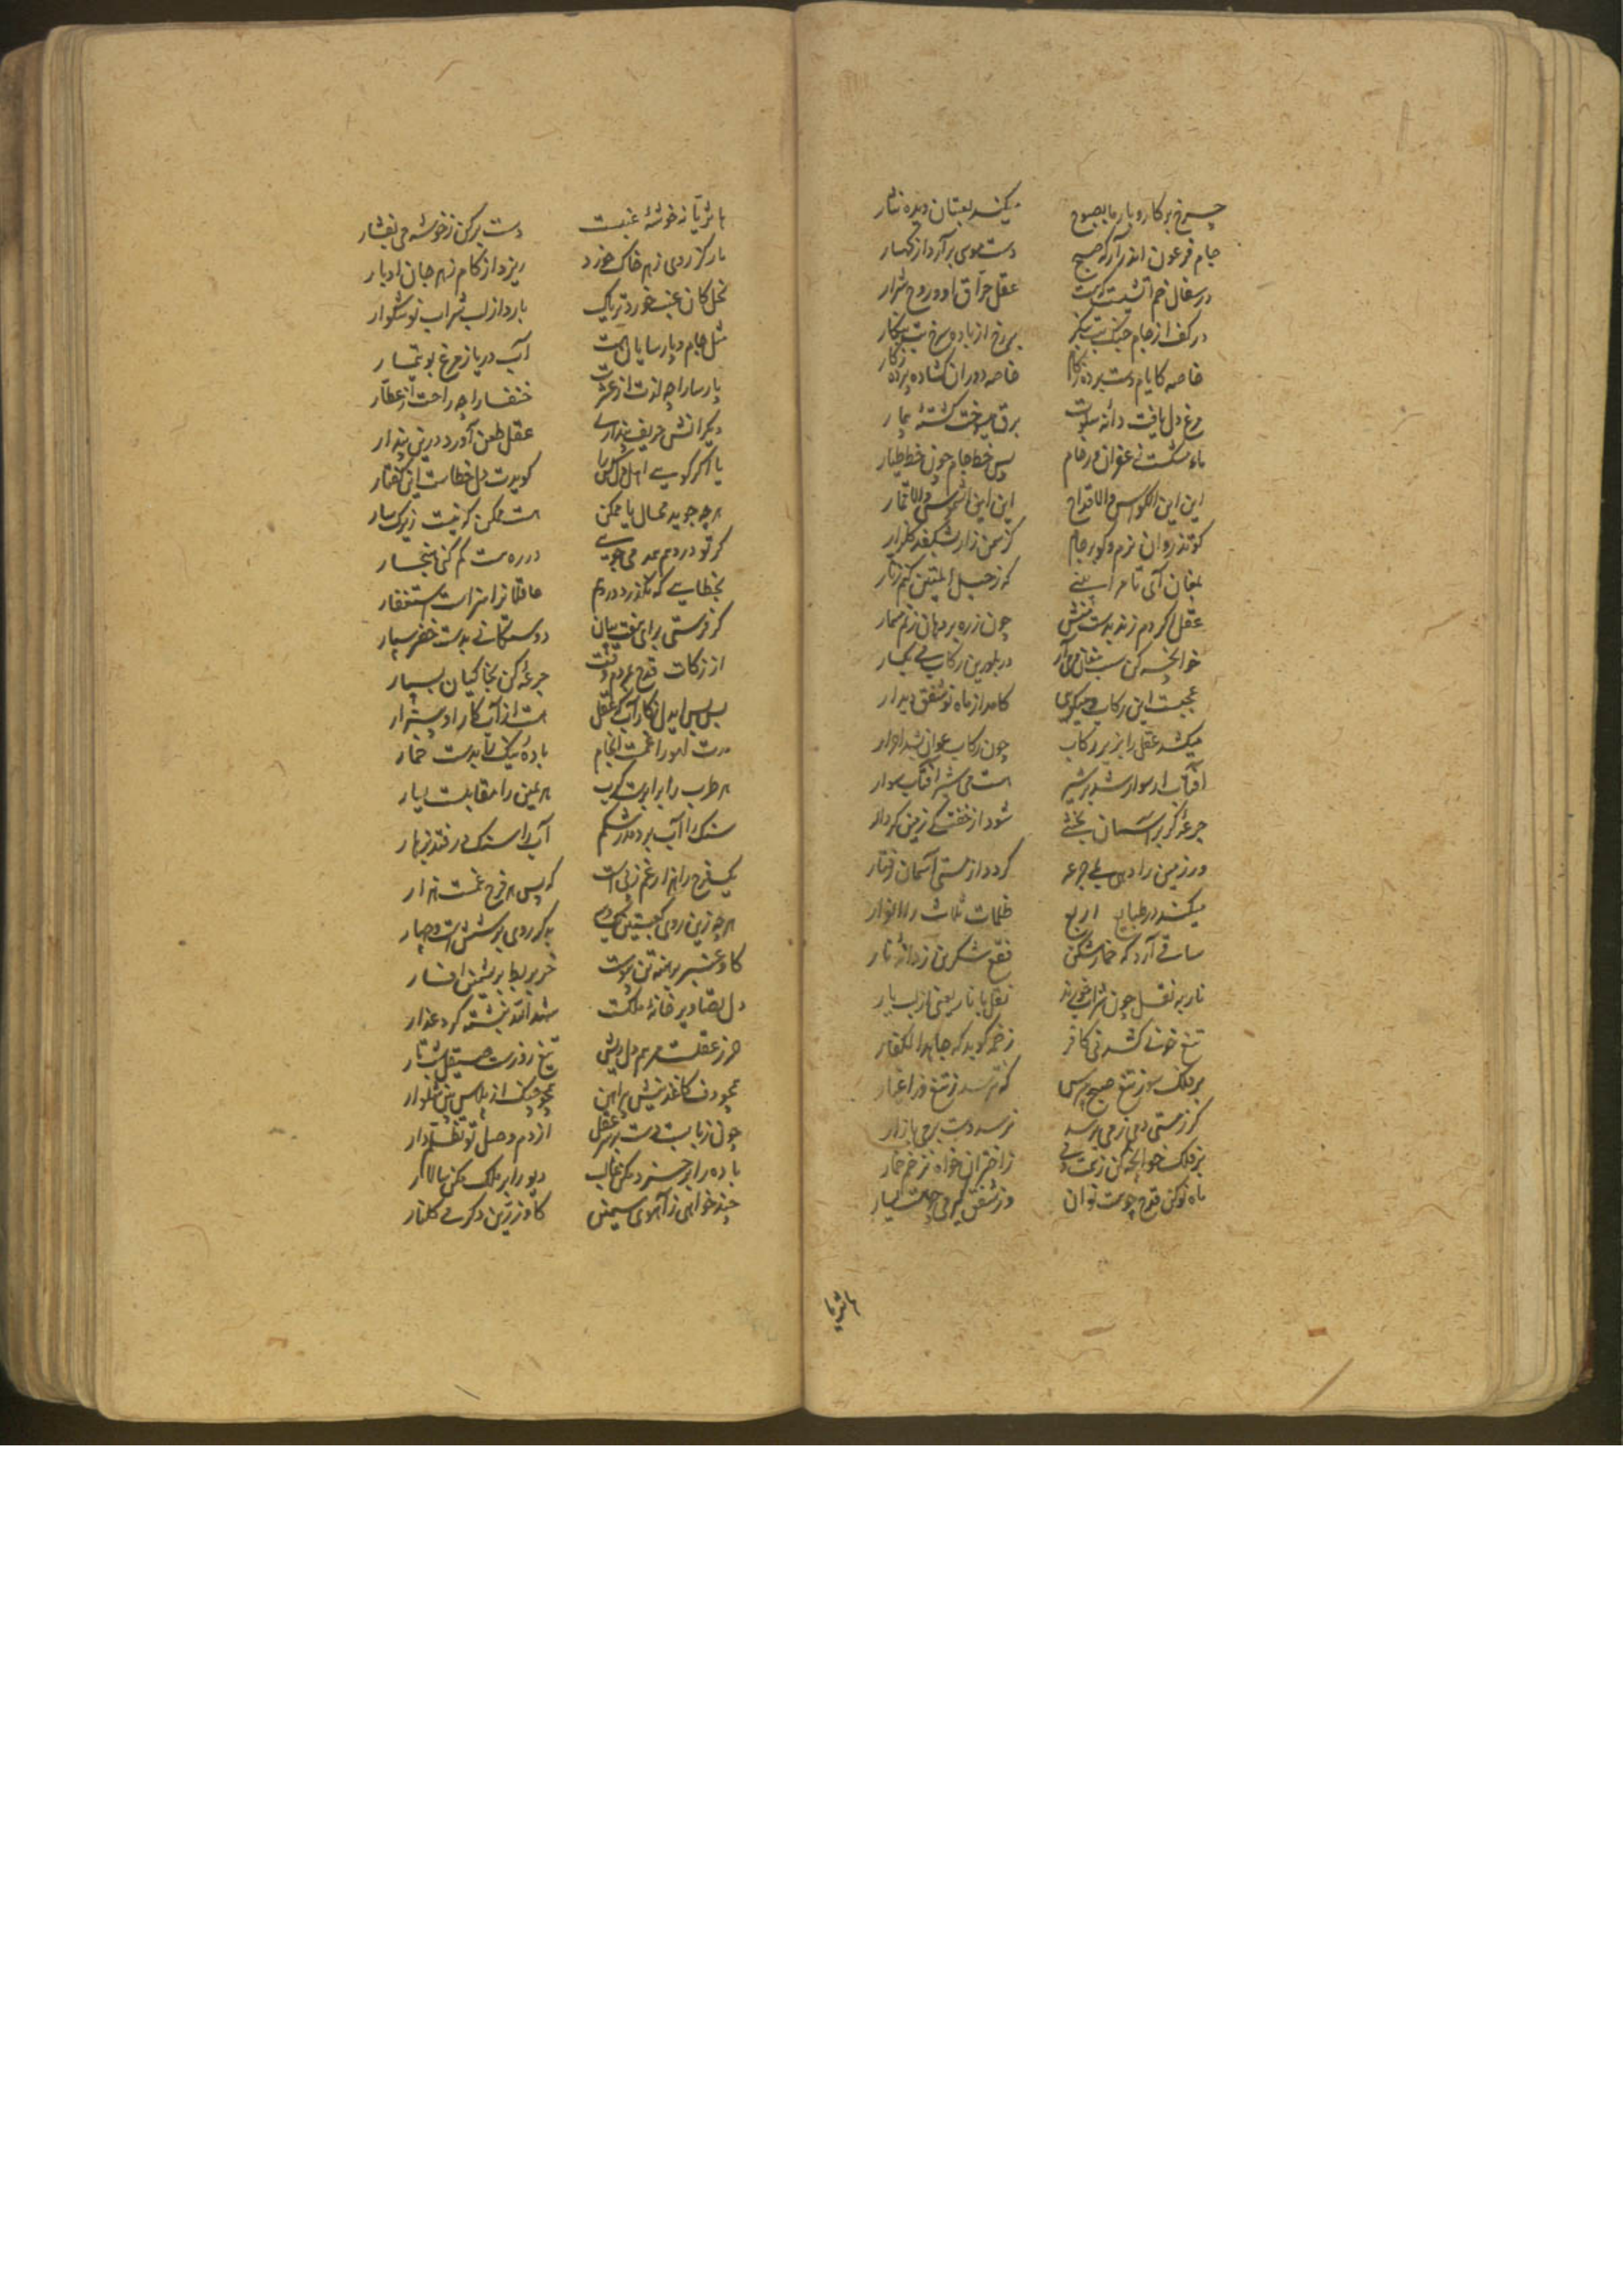 چرخ بر کار و بار ما بصبوح میکند لعبتان دیده نثار
جام فرعون اندر آر که صبح دست موسی برآرد از کهسار
در سفال خم آتشیست که هست عقل حراق او و روح شرار
در کف از جام خنگ بت بنگر بر رخ از باده سرخ بت بنگار
خاصه کایام بست پرده زکام خاصه دوران گشاده پرده زکار
مرغ دل یافت دانه سلوت برق می سوخت کشته تیمار
ماه نو شست زعفران در جام پس خط جام چون خط طیار
این این الکؤس والاقداح این این الشموس والاقمار
کو تذروان بزم و کوثر جام کز سمن زار بشکفد گلزار
بمغان آی تا مرا بینی که ز حبل المتین کنم زنار
عقل اگر دم زند بدست منش چون زره بر دهان زنم مسمار
خوانچه کن سنت مغان می آر در بلورین رکاب می بگسار
عجبست این رکاب می گوئی کامد از ماه نو شفق دیدار
میکشد عقل را بزیر رکاب چون رکاب گران شد احرار
آفتاب ار سوار شد بر شیر هست می شیر آفتاب سوار
جرعه گر بر آسمان بخشی شود از خفتگی زمین کردار
ور زمین را دهی یکی جرعه گردد از مستی آسمان رفتار
میکند در طبایع اربع ظلمات ثلاث را انوار
ساقی آرد گه خمار شکن فقع شکرین ز دانه نار
نار به نقل چون شراب خوری نقل با نار یعنی از لب یار
تیغ خونی کشد می کافر زخمه گوید که جاهدوا الکفار
بر فلک شو ز تیغ صبح مترس که نترسد ز تیغ و سر عیار
گر ز مستی دمی ز می برسد نرسد دست بر می بازار
بر فلک خوانچه کن ز همت می ز اختران خواه نرخ خمار
ماه نو کن قدح چو هست توان وز شفق گیر می چو هست ایسار
با ثریا
با ثریا نه خوشه عنبست دست بر کن ز خوشه می بفشار
مار کز ردی زهر خاک خورد ریزد از کام زهر جان اوبار
نحل کان عنب خورد بر تاک بارد از لب شراب نوشگوار
مثل جام و پارسایان هست آب دریا و مرغ بوتیمار
پارسا را چه لذت از عشرت خنفسا را چه راحت از عطار
دیگر آتش حریف پنداری عقل طعن آورد درین پندار
یا اگر گویی اهل دل کس را گویدت دل خطاست این گفتار
هر چه جوید محال یا ممکن هست ممکن که نیست زیرک سار
گر تو در دم همدمی جویی در ره هست گم کنی هنجار
بخطایی که بگذرد در وهم عاقلان را سزاست استغفار
گر فرستی برای نقب بیان دوستگانی بدست خضر سپار
از زکات قدح گرم وقتست جرعه کن بخاکیان بسپار
بس بس ایدل ز کار آب که عقل هست از آب کار او بیزار
مدت لهو را غمست انجام باده نیک را بدست خمار
هر طرب را برابرست کرب هر یمین را مقابلست یسار
سنگ را آب بردمد ز شکم آب را سنگ در فتد بزهار
یک فرح را هزار غم ز پی است که پس هر فرح غمست هزار
هر چه زین روی کعبتین یک دو است بر دگر روی شش است و چهار
گاو عنبر برهنه تن پیوست خر بربط بریشمین افسار
دل تصاویر خانه ملکت شد اثقد نبشته گرد عذار
حرز عقلست مرهم دل ریش تیغ روزست صیقل شب تار
همچو دف کاغذینش پیراهن همچو چنگ از پلاس بین شلوار
چون ز بابست دست بر سر عقل از دم وصل تو نظم دار
باده را بر خرد مکن غالب دیو را بر ملک مکن سالار
چند خواهی ز آهوی سیمین گاو زرین که می خورد گلنار